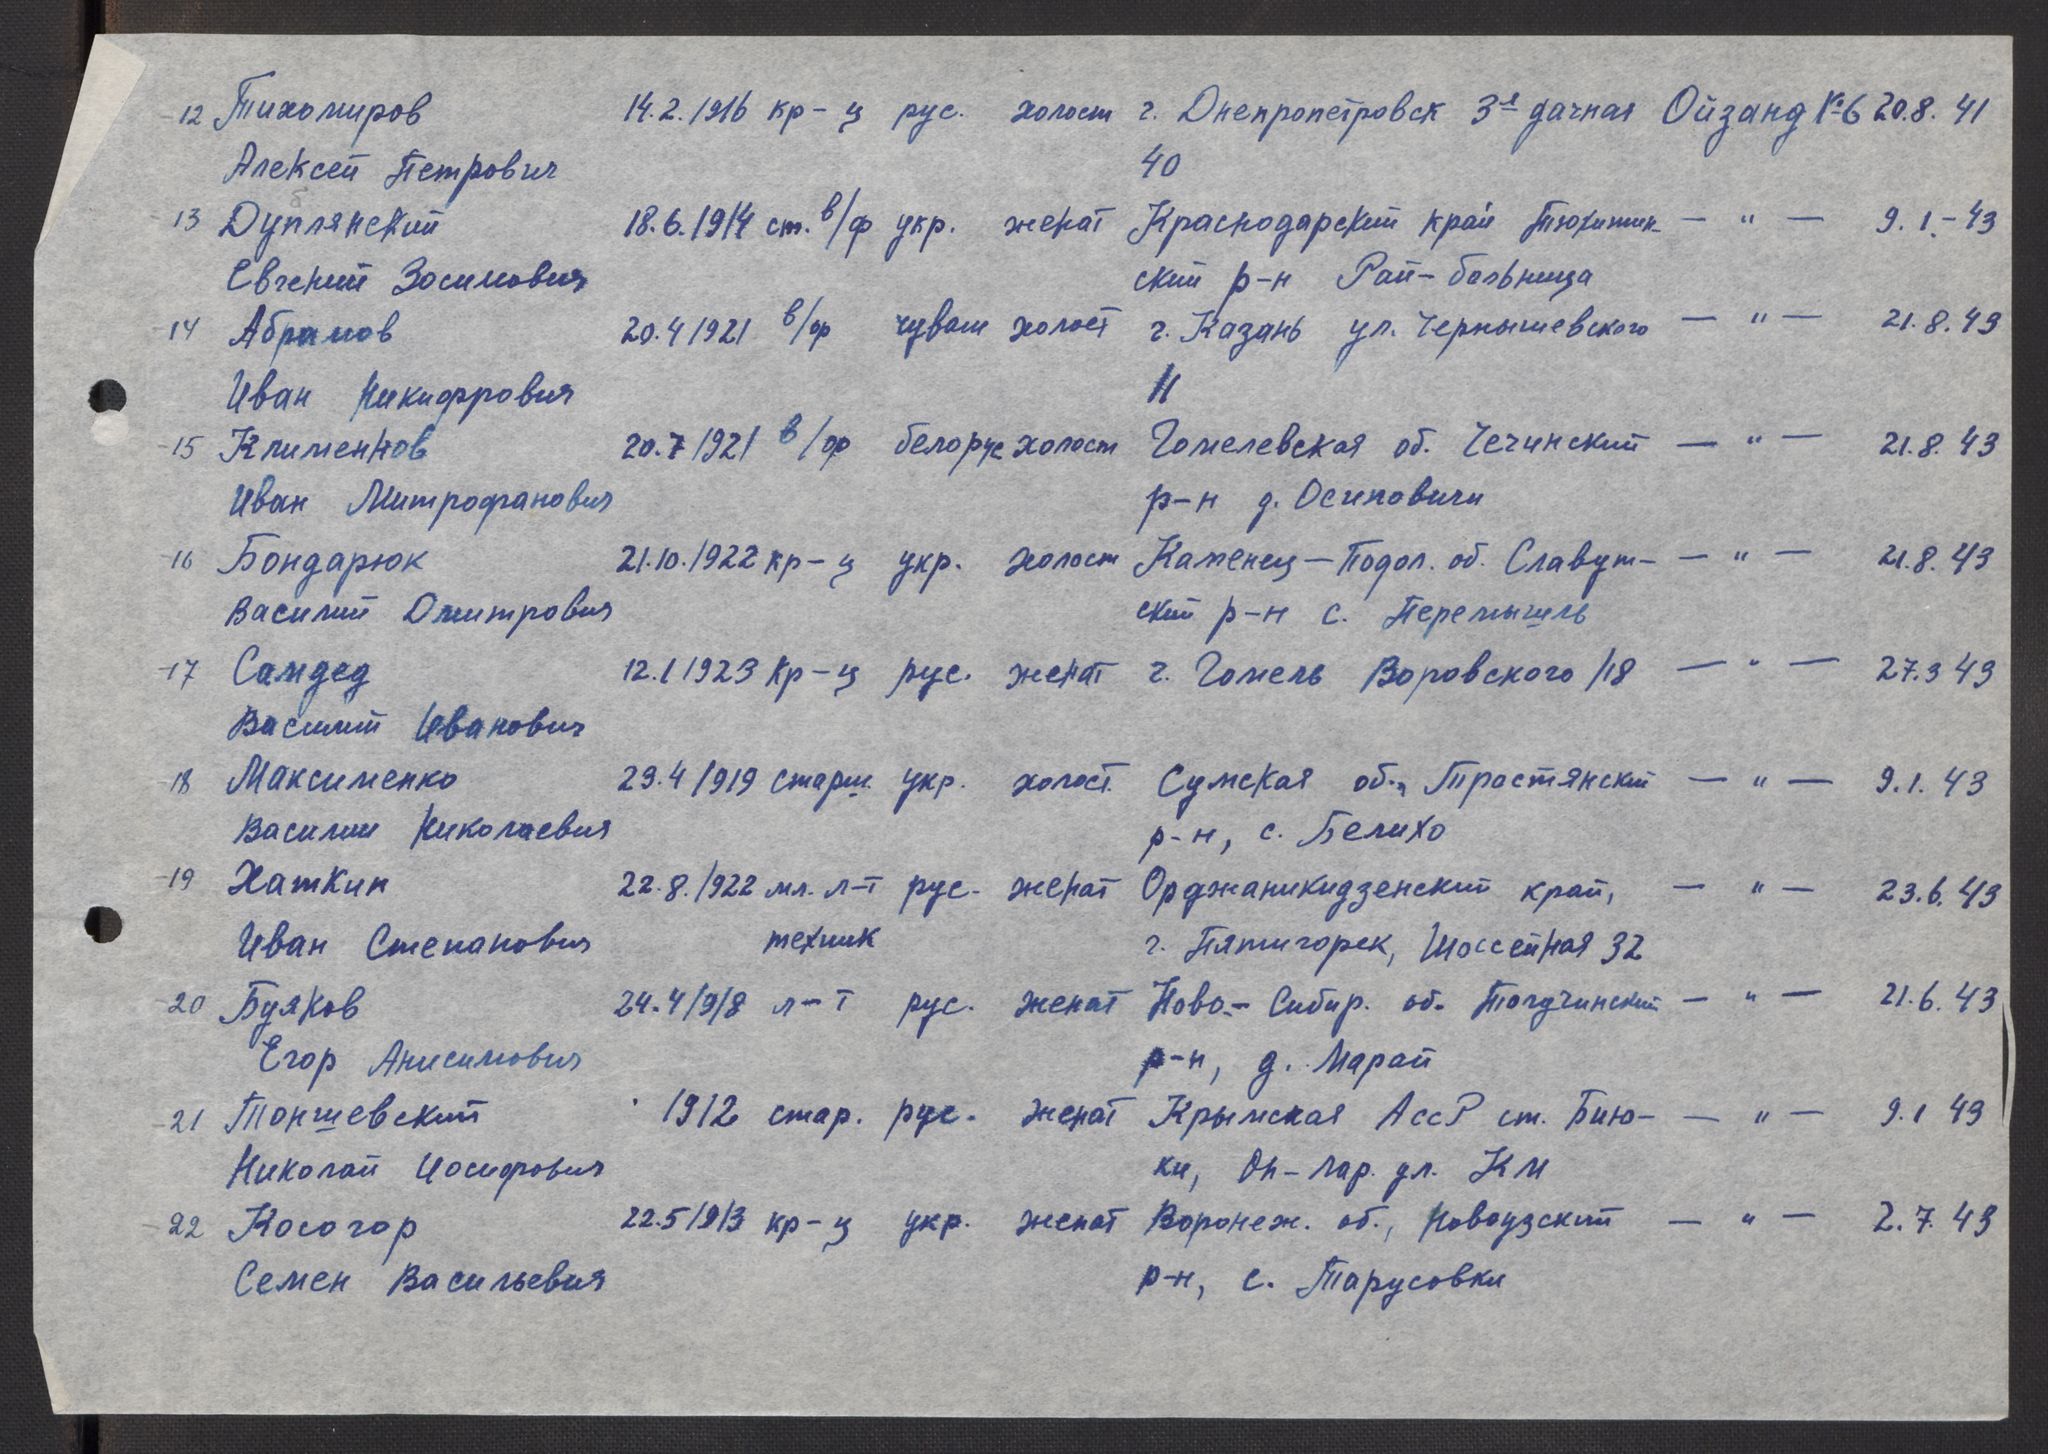 12 Тихомиров 14.2.1916 кр-ц рус. холост г. Днепропетровск 3я дачная Ойзанд №6 20.8.41
Алексей Петрович 40
13 Дуплянский 18.6.1914 ст. в/ф укр. женат Краснодарский край — " — 9.1.-43
Евгений Зосимович ский р-н Рай-больница
14 Абрамов 20.4 1921 в/ф чуваш холост г. Казань ул. Чернышевского — " — 21.8.43
Иван Никифрович 11
15 Климентов 20.7 1921 в/ф белорус холост Гомелевская об. Чечинский — " — 21.8.43
Иван Митрофанович р-н д. Осиповичи
16 Бондарюк 21.10.1922 кр-ц укр. холост Каменец-Подол. об. Славут- — " — 21.8.43
Василий Дмитрович ский р-н с. Перемышль
17 Самдед 12.1 1923 кр-ц рус. женат г. Гомель Воровского /18 — " — 27.3 43
Василий Иванович
18 Максименко 23.4 1919 старш. укр. холост. Сумская об., Тростянский — " — 9.1.43
Василий Николаевич р-н, с. Белихо
19 Хаткин 22.8.1922 мл. л-т рус. женат Орджаникидзенский край, — " — 23.6.43
Иван Степанович техник г. Пятигорск, Шоссейная 32
20 Буяков 24.4 1918 л-т рус. женат Ново-Сибир. об. Тогучинский — " — 21.6.43
Егор Анисимович р-н, д. Марай
21 Тоншевский 1912 стар. рус. женат Крымская АссР ст. Бию- — " — 9.1 43
Николай Иосифович ки, Он-Лар. ул. КМ
22 Косогор 22.5 1913 кр-ц укр. женат Воронеж. об., Новоузский — " — 2.7.43
Семен Васильевич р-н, с. Тарусовки